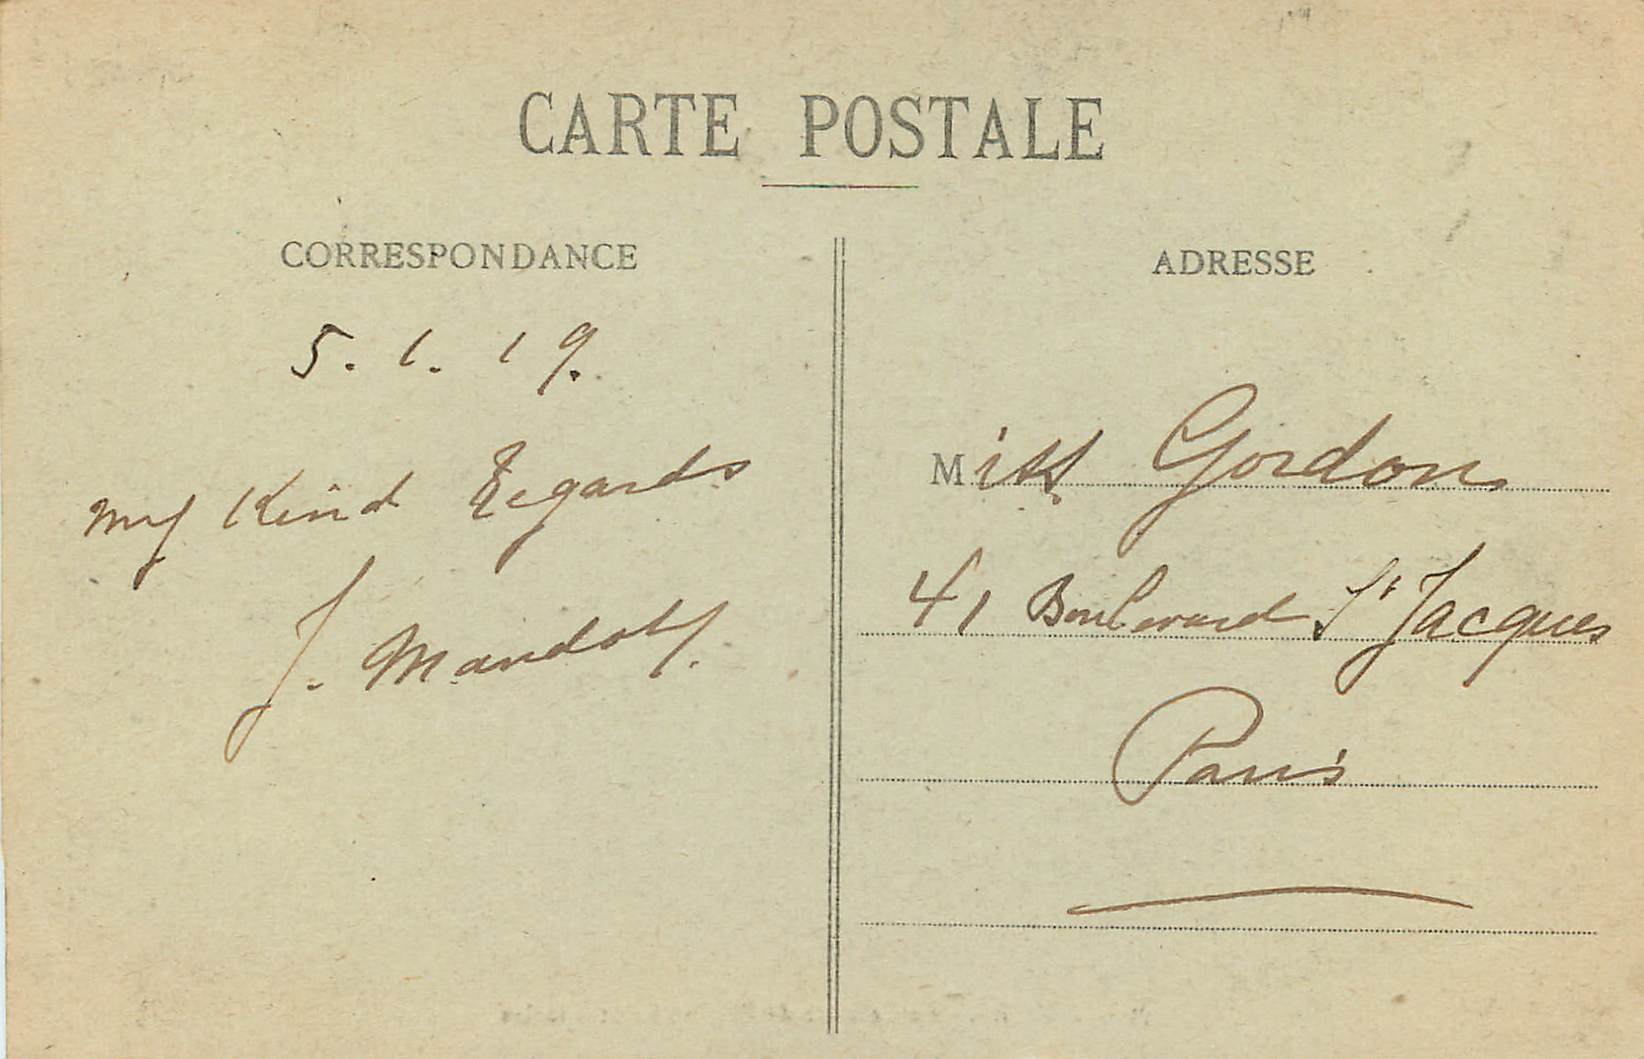 CARTE POSTALE
CORRESPONDANCE
5. 1. 19.
My Kind Regards
J.
ADRESSE
Miss Gordon
41 Boulevard St Jacques
Paris